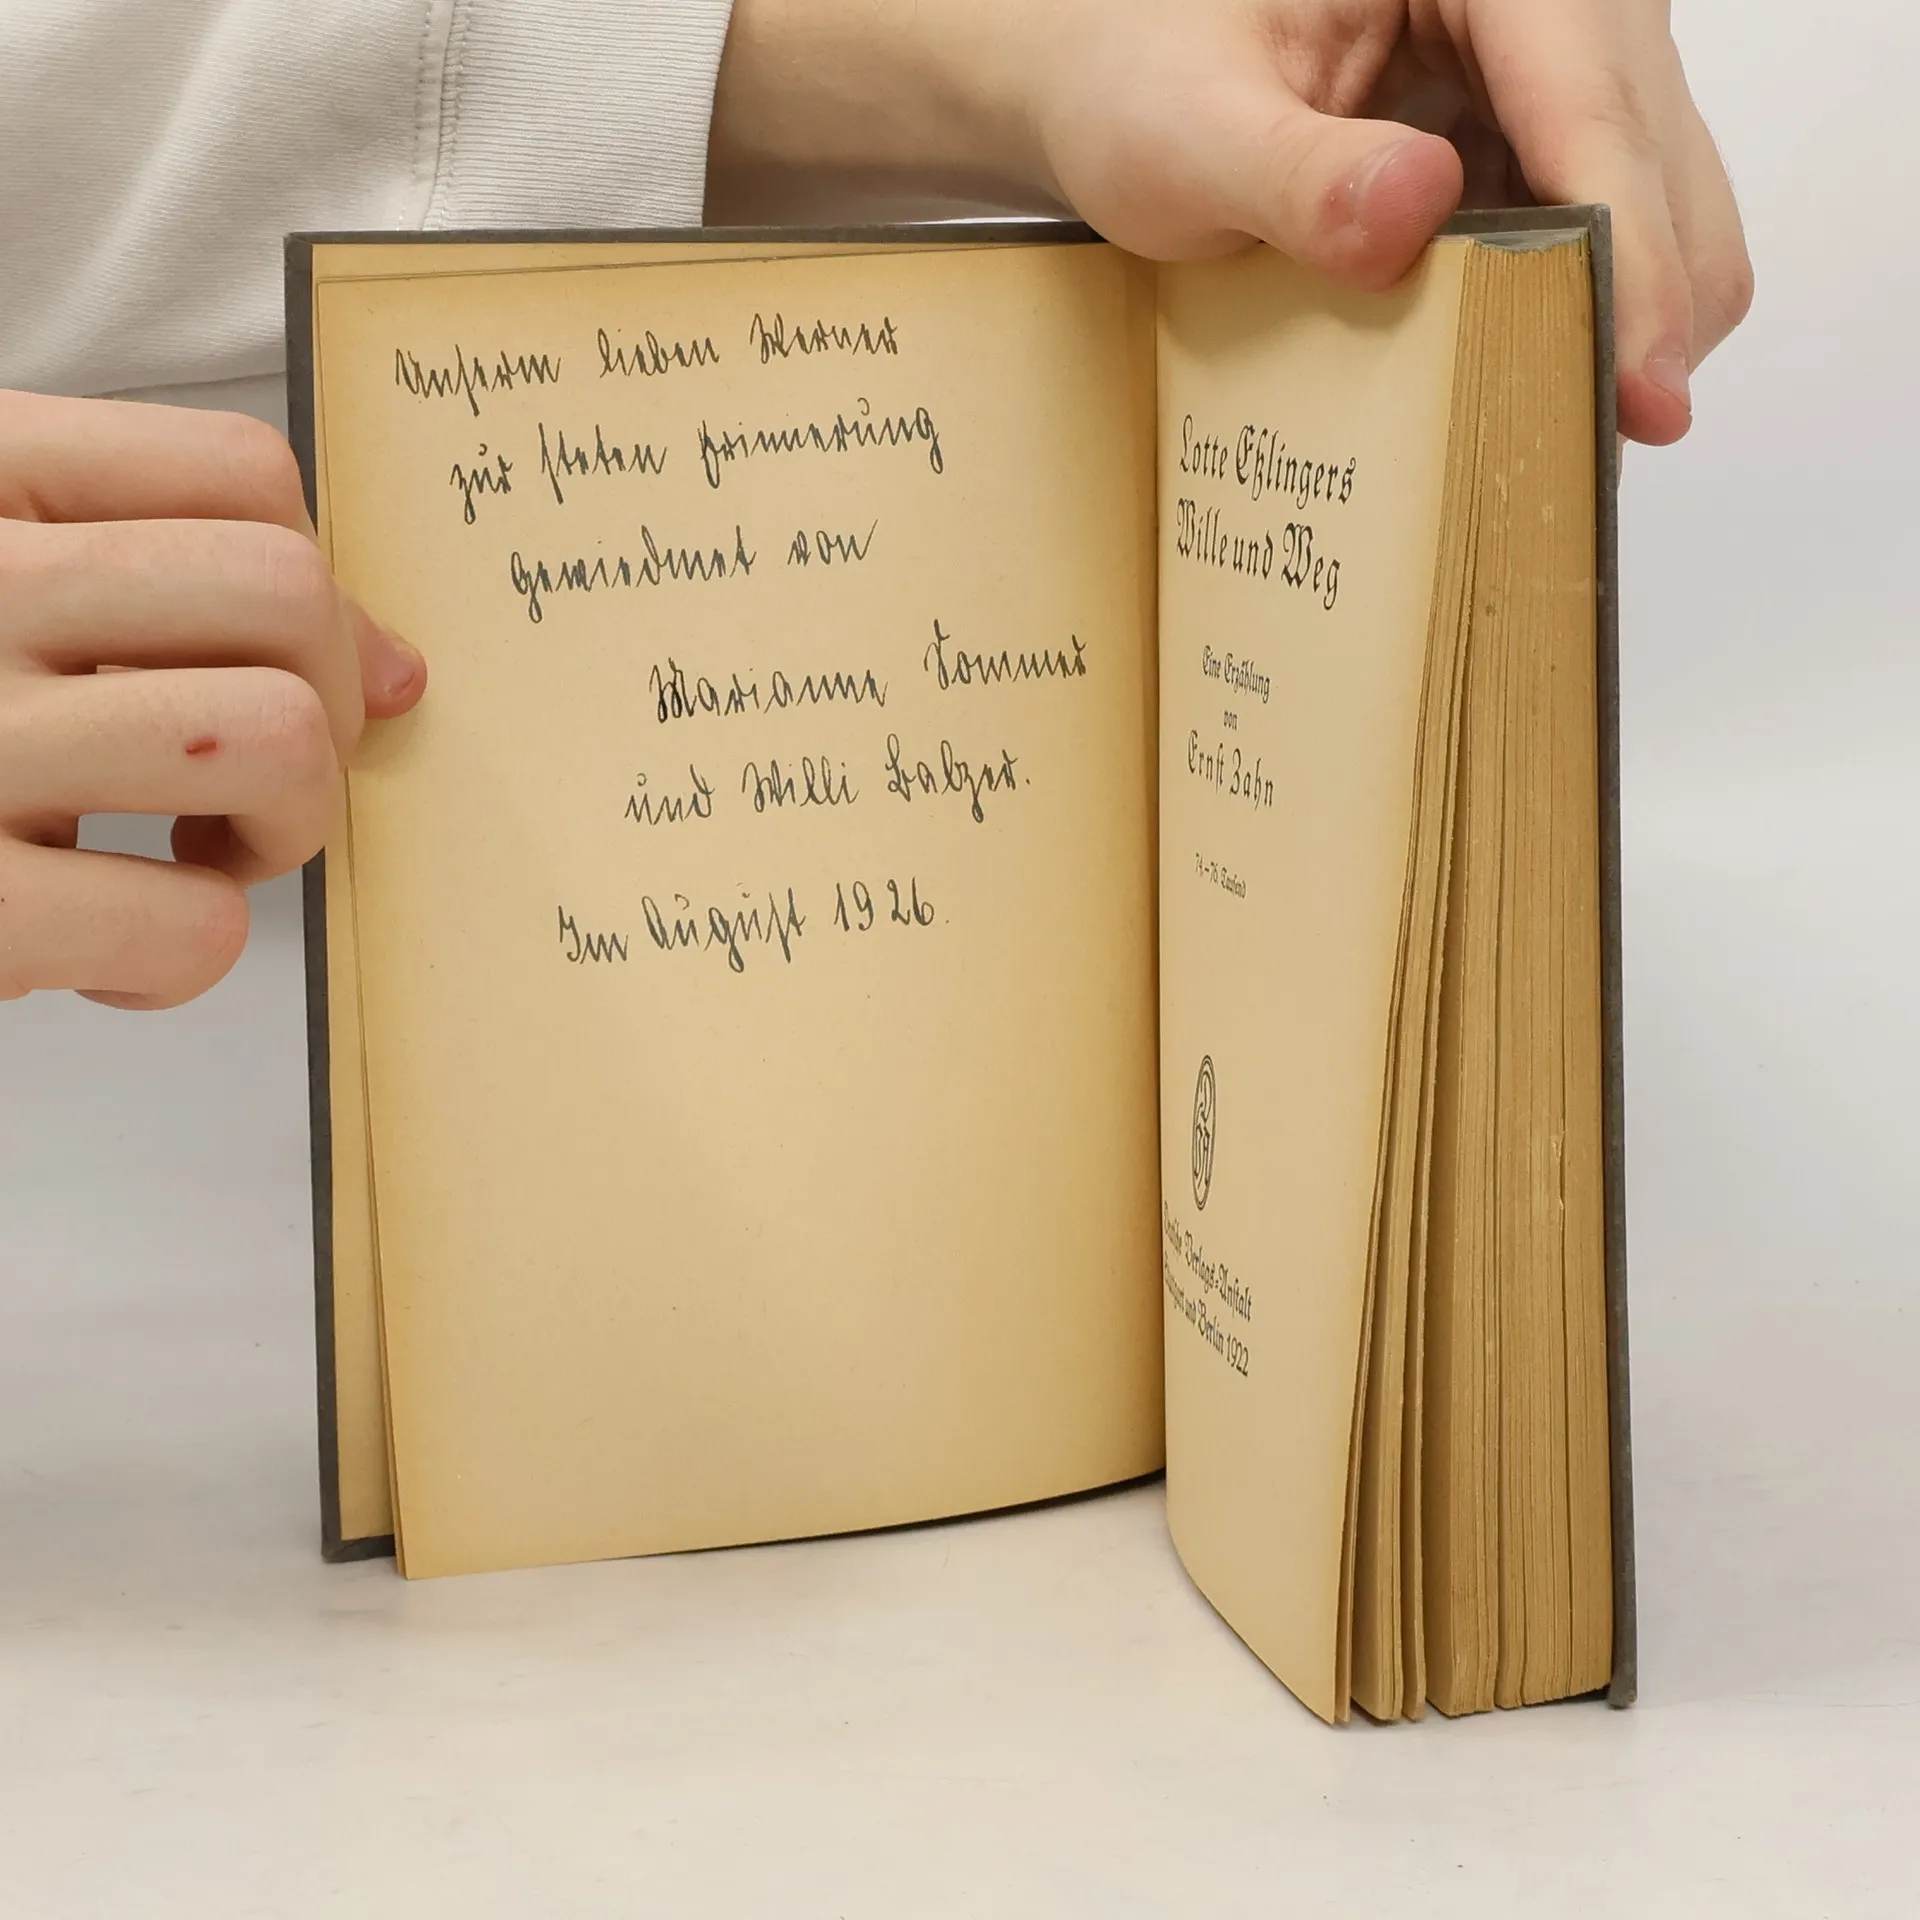 Unserm lieben Werner
zur steten Erinnerung
gewiedmet von
Marianne Sommer
und Willi Balzer.
Im August 1926.
Lotte Eßlingers
Wille und Weg
Eine Erzählung
von
Ernst Zahn
74.–76. Tausend
DVA
Deutsche Verlags-Anstalt
Stuttgart und Berlin 1922